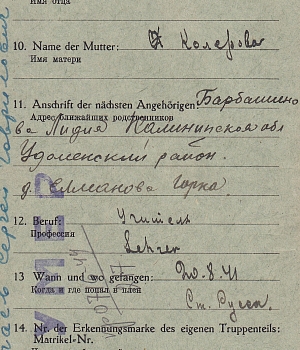 Имя отца
10. Name der Mutter: Колерова
Имя матери
11. Anschrift der nächsten Angehörigen: Барбашино
Адрес ближайших родственников
ва Лидия Калининская обл
Удомленский район.
д. Елманова Горка.
УМЕР
12. Beruf: Учитель
Профессия
Lehrer
13 Wann und wo gefangen: 20.8.41
Когда и где попал в плен
Ст. Русса.
14. Nr. der Erkennungsmarke des eigenen Truppenteils:
Matrikel-Nr.
Сергей Гаврилович